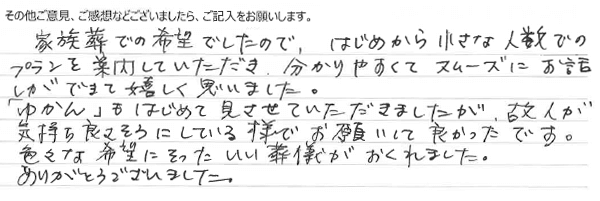 その他ご意見、ご感想などございましたら、ご記入をお願いします。
家族葬での希望でしたので、はじめから小さな人数での
プランを案内していただき、分かりやすくてスムーズにお話
しができて嬉しく思いました。
「ゆかん」もはじめて見させていただきましたが、故人が
気持ち良さそうにしている様でお願いして良かったです。
色々な希望にそったいい葬儀がおくれました。
ありがとうございました。